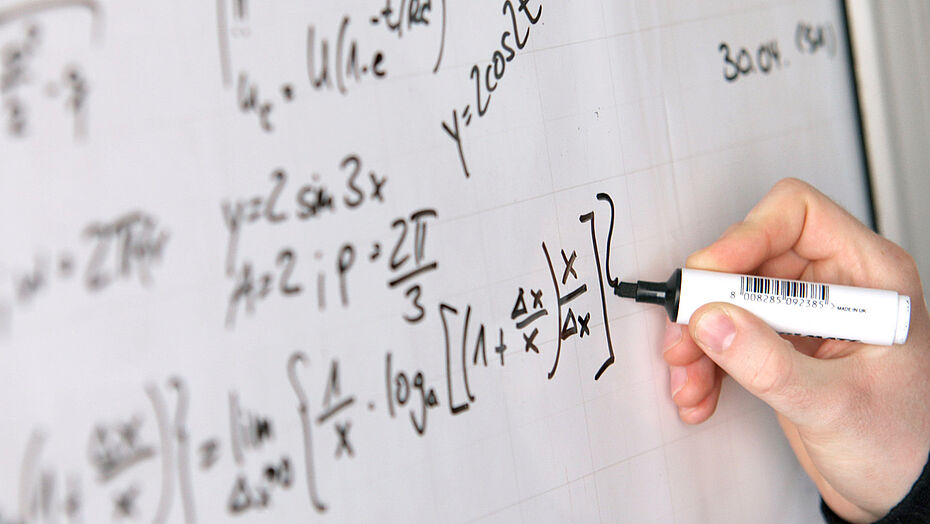 u_c = U(1-e^{-t/RC})
y=2cos2t
30.04.
y=2 sin 3x
A=2 ; P = \frac{2π}{3}
(1+ \frac{Δx}{x})} = lim_{Δx→0} { \frac{1}{x} · log_a [(1+ \frac{Δx}{x})^{\frac{x}{Δx}}]
8 008285 092385 >
MADE IN UK